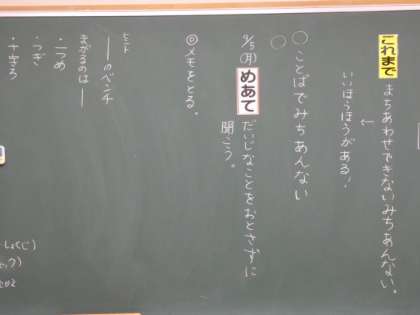 これまで
まちあわせできないみちあんない。
↓
いいほうほうがある!
○ことばでみちあんない
○
9/5(月)
めあて
だいじなことをおとさずに
聞こう。
◎メモをとる。
ヒント
―のベンチ
まがるのは―
・一つめ
・つぎ
・十字ろ